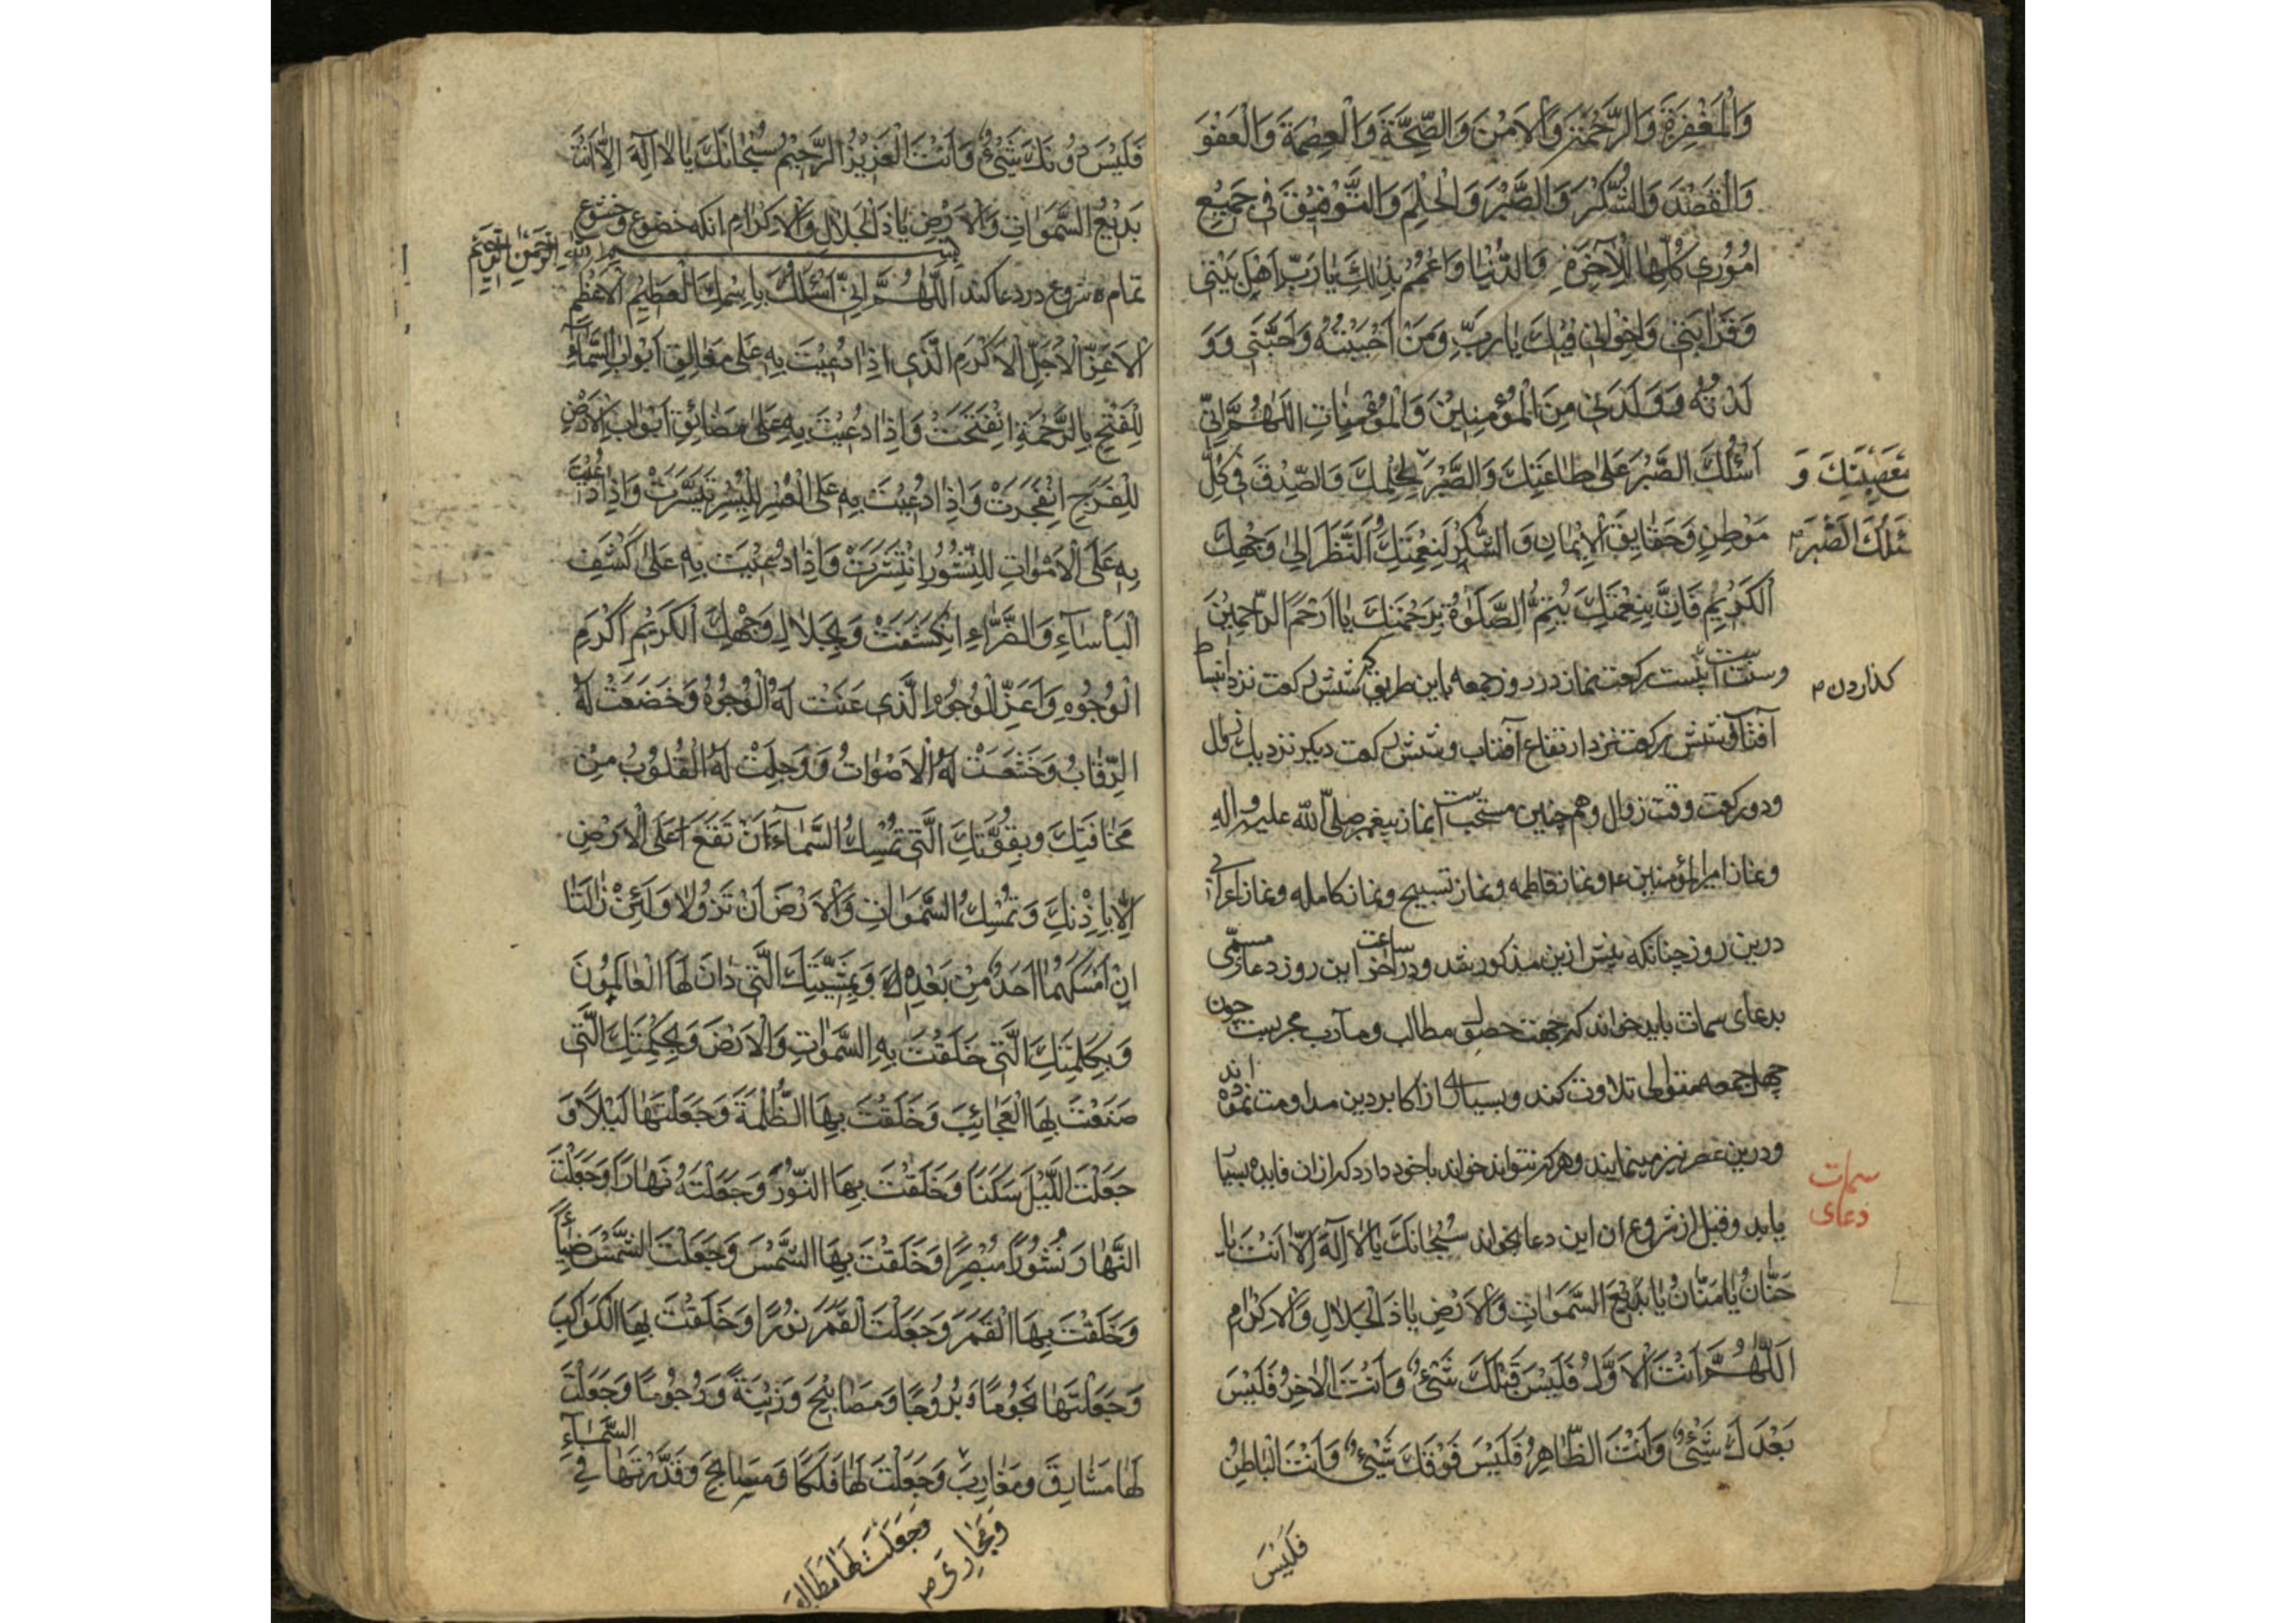 وَالْمَغْفِرَةَ وَالرَّحْمَةَ وَالْاَمْنَ وَالصِّحَّةَ وَالْعِصْمَةَ وَالْعَفْوَ
وَالْقَصْدَ وَالشُّكْرَ وَالصَّبْرَ وَالْحِلْمَ وَالتَّوْفِيْقَ فِى جَمِيْعِ
اُمُوْرِى كُلِّهَا لِلْآخِرَةِ وَالدُّنْيَا وَاعْمُمْ بِذٰلِكَ يَا رَبِّ اَهْلَ بَيْتِى
وَقَرَابَتِى وَاِخْوَانِى فِيْكَ يَا رَبِّ وَمَنْ اَحْبَبْتُهُ وَاَحَبَّنِى وَوَ
لَدْتُهُ وَوَلَدَنِى مِنَ الْمُؤْمِنِيْنَ وَالْمُؤْمِنَاتِ اَللّٰهُمَّ اِنِّى
اَسْئَلُكَ الصَّبْرَ عَلٰى طَاعَتِكَ وَالصَّبْرَ لِحُكْمِكَ وَالصِّدْقَ فِى كُلِّ
مَعْصِيَتِكَ وَ
مَوْطِنٍ وَحَقَايِقَ الْاِيْمَانِ وَالشُّكْرَ لِنِعْمَتِكَ اَلنَّظَرَ اِلٰى وَجْهِكَ
ئَلُكَ الصَّبْرَ
الْكَرِيْمِ فَاِنَّ بِنِعْمَتِكَ يُتِمُّ الصَّلَوٰةُ بِرَحْمَتِكَ يَا اَرْحَمَ الرَّاحِمِيْنَ
وسنت است بيست ركعت نماز در روز جمعه باين طريق كه شش ركعت نزد انبساط
كذاردن
آفتاب و شش ركعت نزد ارتفاع آفتاب و شش ركعت ديكر نزديك زوال
ودو ركعت وقت زوال وهم چنين مستحب است نماز پيغمبر صلى الله عليه واله
ونماز امير المؤمنين ونماز فاطمه ونماز تسبيح ونماز كامله ونماز اعرابى
درين روز چنانكه پيش ازين مذكور شد ودر آخر ساعت اين روز دعاء مسمّى
بدعاى سمات بايد خواند كه جهت حصول مطالب ومآرب مجربست چون
چهل جمعه متوالى تلاوت كنند وبسيارى از اكابر دين مداومت نموده اند
ودرين عصر نيز مينمايند وهر كه نتواند خواند با خود دارد كه از ان فايده بسيار
سمات
دعاى
يابد وقبل از شروع ان اين دعا بخواند سُبْحَانَكَ يَا لَا اِلٰهَ اِلَّا اَنْتَ يَا
حَنَّانُ يَا مَنَّانُ يَا بَدِيْعَ السَّمَوَاتِ وَالْاَرْضِ يَا ذَا الْجَلَالِ وَالْاِكْرَامِ
اَللّٰهُمَّ اَنْتَ الْاَوَّلُ فَلَيْسَ قَبْلَكَ شَىْءٌ وَاَنْتَ الْاٰخِرُ فَلَيْسَ
بَعْدَكَ شَىْءٌ وَاَنْتَ الظَّاهِرُ فَلَيْسَ فَوْقَكَ شَىْءٌ وَاَنْتَ الْبَاطِنُ
فَلَيْسَ
فَلَيْسَ دُوْنَكَ شَىْءٌ وَاَنْتَ الْعَزِيْزُ الرَّحِيْمُ سُبْحَانَكَ يَا لَا اِلٰهَ اِلَّا اَنْتَ
بَدِيْعُ السَّمَوَاتِ وَالْاَرْضِ يَا ذَا الْجَلَالِ وَالْاِكْرَامِ انكه خضوع وخشوع
بسم الله الرحمن الرحيم
تمام شروع در دعا كند اَللّٰهُمَّ اِنِّى اَسْئَلُكَ بِاسْمِكَ الْعَظِيْمِ الْاَعْظَمِ
الْاَعَزِّ الْاَجَلِّ الْاَكْرَمِ الَّذِى اِذَا دُعِيْتَ بِهِ عَلٰى مَغَالِقِ اَبْوَابِ السَّمَآءِ
لِلْفَتْحِ بِالرَّحْمَةِ انْفَتَحَتْ وَاِذَا دُعِيْتَ بِهِ عَلٰى مَضَائِقِ اَبْوَابِ الْاَرْضِ
لِلْفَرَجِ انْفَجَرَتْ وَاِذَا دُعِيْتَ بِهِ عَلَى الْعُسْرِ لِلْيُسْرِ تَيَسَّرَتْ وَاِذَا دُعِيْتَ
بِهِ عَلَى الْاَمْوَاتِ لِلنُّشُوْرِ انْتَشَرَتْ وَاِذَا دُعِيْتَ بِهِ عَلٰى كَشْفِ
الْبَأْسَآءِ وَالضَّرَّاءِ انْكَشَفَتْ وَبِجَلَالِ وَجْهِكَ الْكَرِيْمِ اَكْرَمِ
الْوُجُوْهِ وَاَعَزِّ الْوُجُوْهِ الَّذِى عَنَتْ لَهُ الْوُجُوْهُ وَخَضَعَتْ لَهُ
الرِّقَابُ وَخَشَعَتْ لَهُ الْاَصْوَاتُ وَوَجِلَتْ لَهُ الْقُلُوْبُ مِنْ
مَخَافَتِكَ وَبِقُوَّتِكَ الَّتِى تُمْسِكُ السَّمَآءَ اَنْ تَقَعَ عَلَى الْاَرْضِ
اِلَّا بِاِذْنِكَ وَتُمْسِكُ السَّمَوَاتِ وَالْاَرْضَ اَنْ تَزُوْلَا وَلَئِنْ زَالَتَا
اِنْ اَمْسَكَهُمَا اَحَدٌ مِنْ بَعْدِهِ وَبِمَشِيَّتِكَ الَّتِى دَانَ لَهَا الْعَالَمُوْنَ
وَبِكَلِمَتِكَ الَّتِى خَلَقْتَ بِهِ السَّمَوَاتِ وَالْاَرْضَ وَبِحِكْمَتِكَ الَّتِى
صَنَعْتَ بِهَا الْعَجَائِبَ وَخَلَقْتَ بِهَا الظُّلْمَةَ وَجَعَلْتَهَا لَيْلًا وَ
جَعَلْتَ اللَّيْلَ سَكَنًا وَخَلَقْتَ بِهَا النُّوْرَ وَجَعَلْتَهُ نَهَارًا وَجَعَلْتَ
النَّهَارَ نُشُوْرًا مُبْصِرًا وَخَلَقْتَ بِهَا الشَّمْسَ وَجَعَلْتَ الشَّمْسَ ضِيَآءً
وَخَلَقْتَ بِهَا الْقَمَرَ وَجَعَلْتَ الْقَمَرَ نُوْرًا وَخَلَقْتَ بِهَا الْكَوَاكِبَ
وَجَعَلْتَهَا نُجُوْمًا وَبُرُوْجًا وَمَصَابِيْحَ وَزِيْنَةً وَرُجُوْمًا وَجَعَلْتَ
لَهَا مَشَارِقَ وَمَغَارِبَ وَجَعَلْتَ لَهَا فَلَكًا وَمَسَابِحَ وَقَدَّرْتَهَا فِى السَّمَآءِ
وَجَعَلْتَ لَهَا مَطَالِعَ
وَمَجَارِىَ